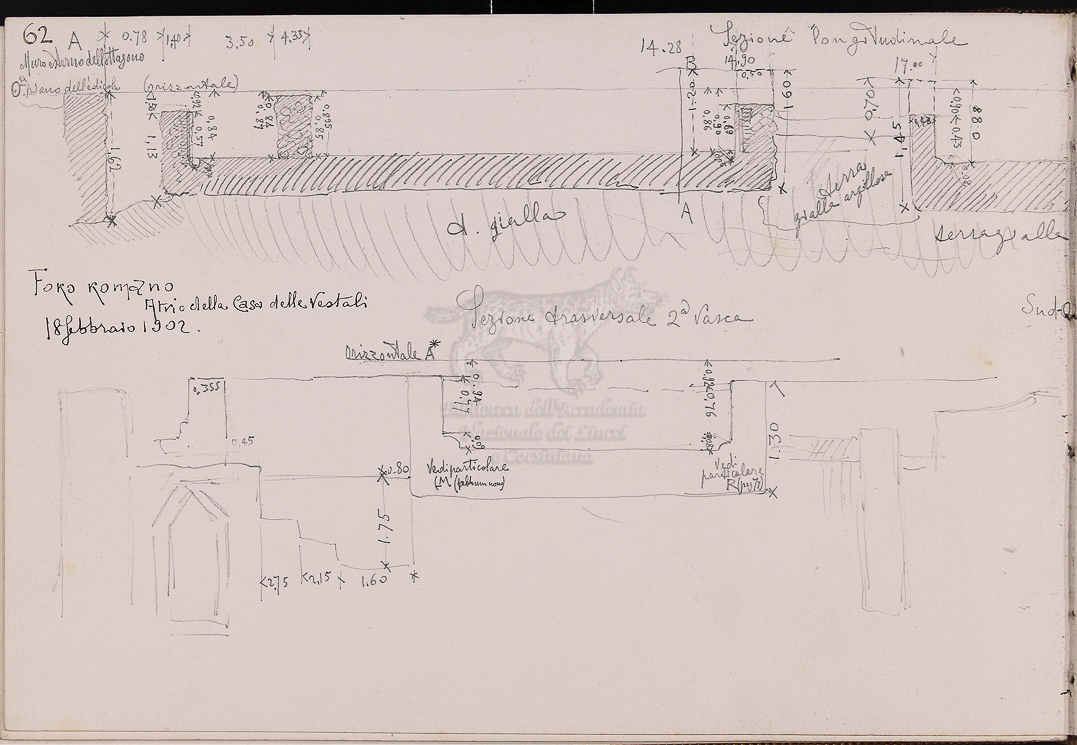 62
A
0.78
1.40
3.50
4.35
14.28
Sezione longitudinale
B
14.90
0.50
17.00
Muro esterno dell'Ottagono
piano dell'edicola
(orizzontale)
1.62
1.13
0.92
0.57
0.84
0.84
0.87
0.895
0.85
1.20
0.86
0.90
0.69
1.60
0.70
1.45
0.48
0.90
0.43
0.88
0.02
A
t. gialla
terra
gialla argillosa
terra gialla
Foro romano
Atrio della Casa delle Vestali
18 febbraio 1902.
Sezione trasversale 2ª Vasca
orizzontale A*
0.355
0.45
0.94
0.77
0.09
0.92
0.76
0.80
1.75
Vedi particolare
M
Vedi
particolare
R
1.30
2.75
2.15
1.60
Biblioteca dell'Accademia
Nazionale dei Lincei
e Corsiniana